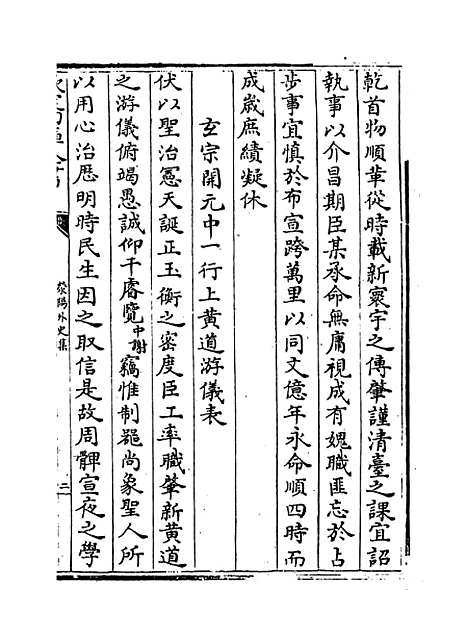 乾首物順革從時載新寰宇之傳肇謹清臺之課宜詔
執事以介昌期臣某承命無庸視成有媿職匪忘於占
步事宜慎於布宣跨萬里以同文億年永命順四時而
成嵗庶績凝休
玄宗開元中一行上黄道游儀表
伏以聖治憲天誕正玉衡之密度臣工率職肇新黄道
之游儀俯竭愚誠仰干睿覽中謝竊惟制器尚象聖人所
以用心治厯明時民生因之取信是故周髀宣夜之學
滎陽外史集
二